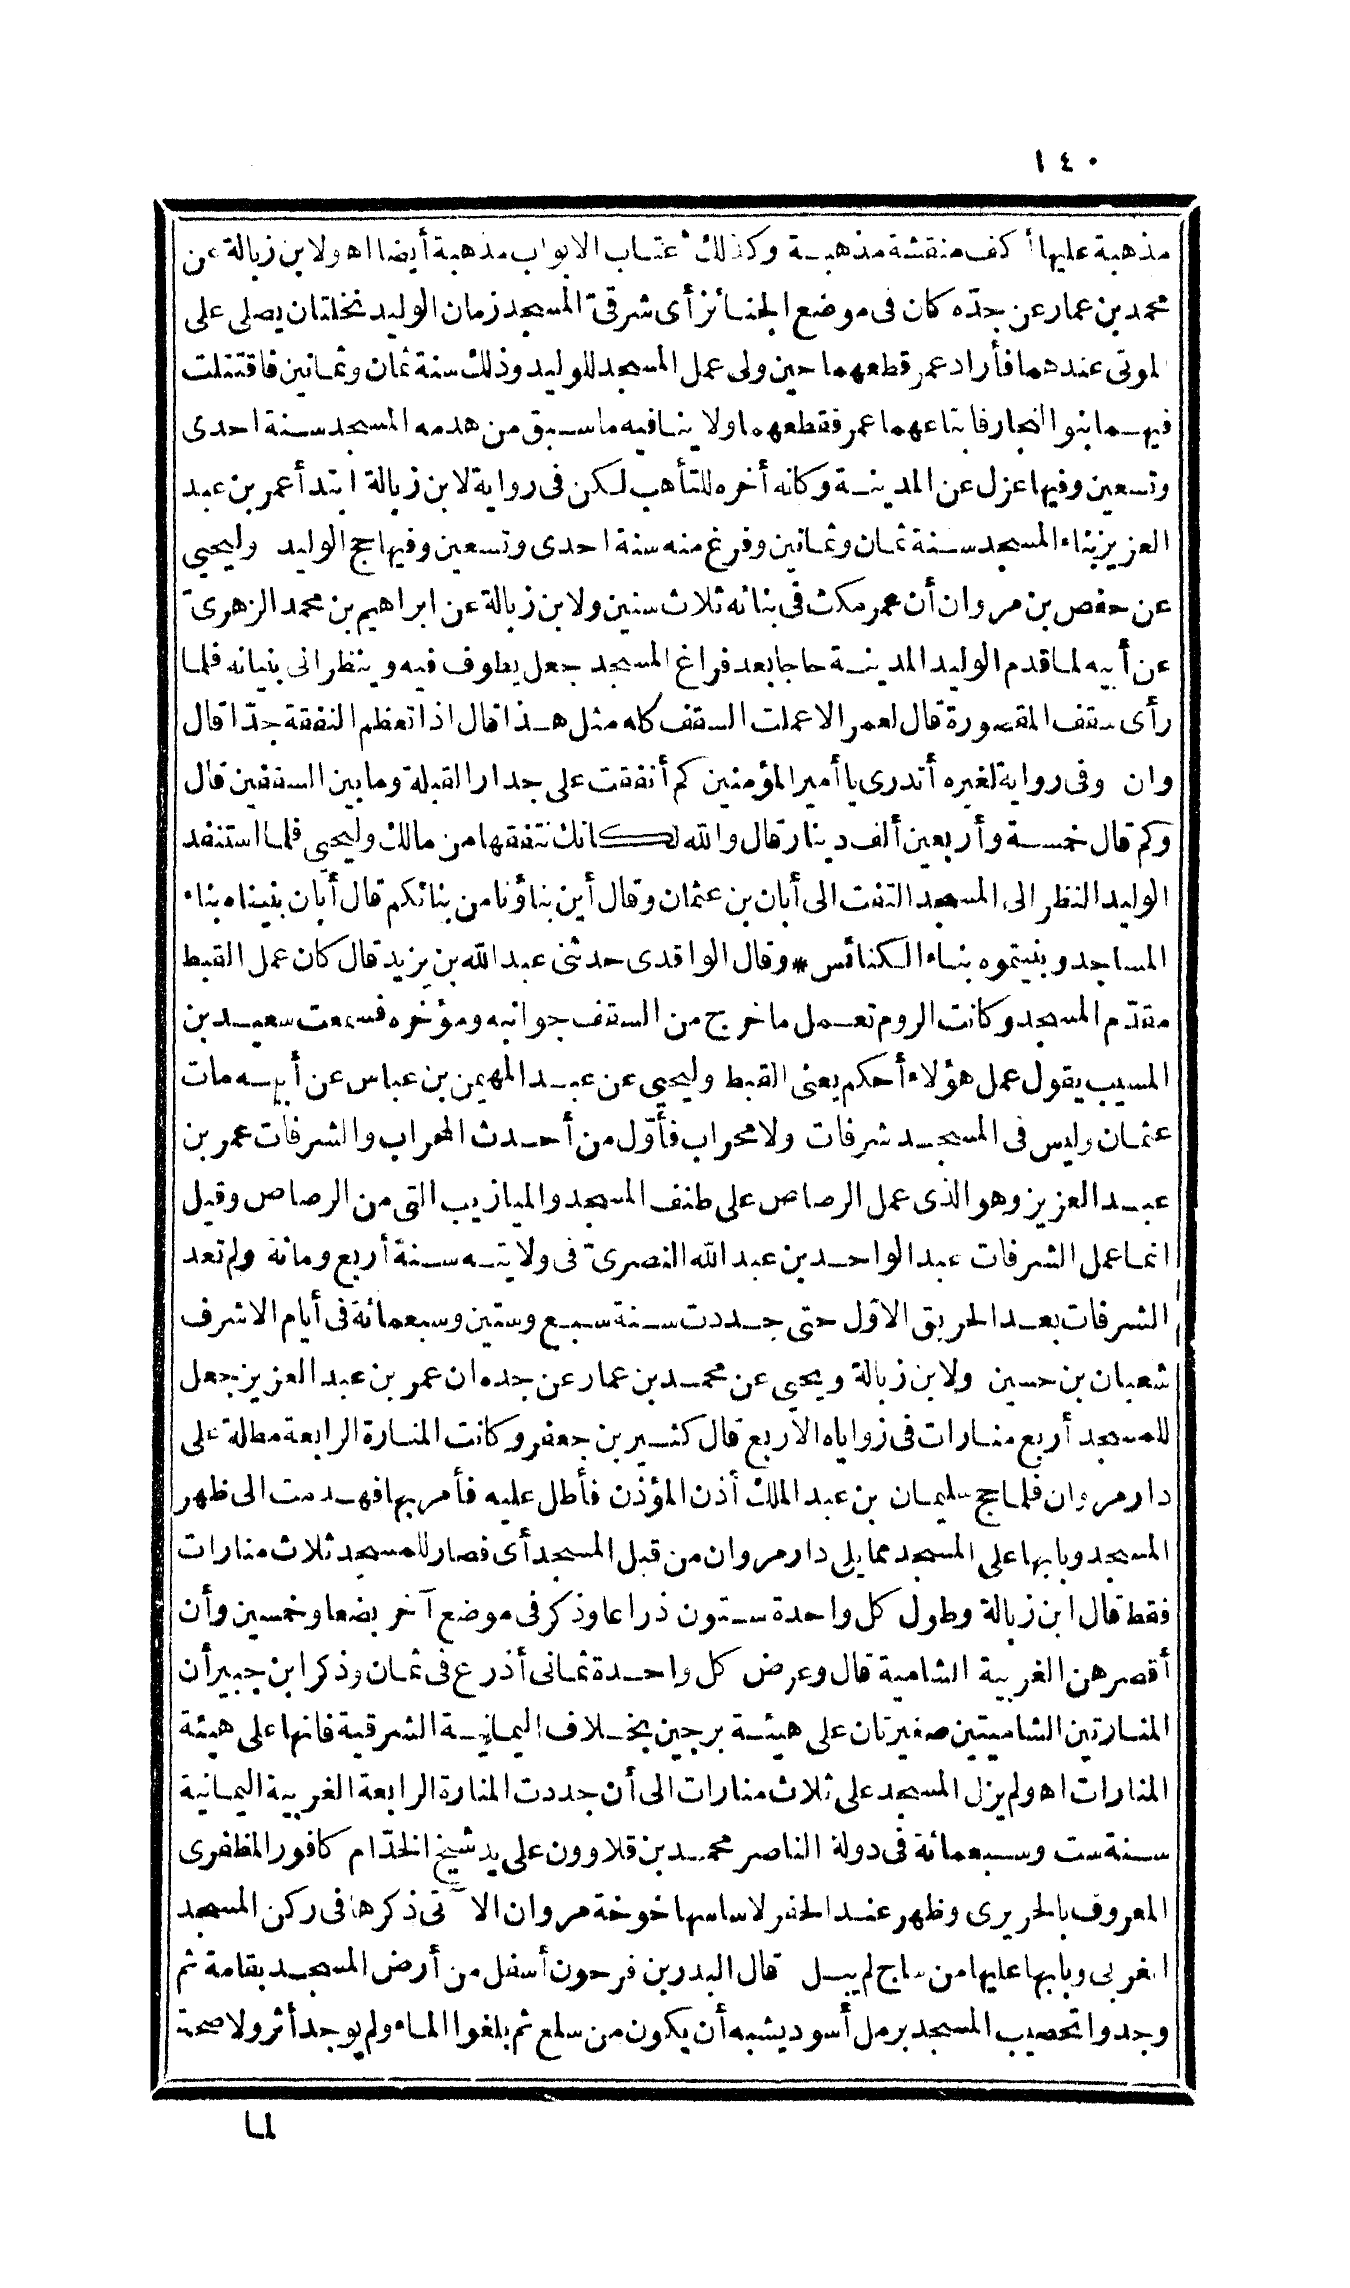 ١٤٠
مذهبة عليها أكف منقشة مذهبة وكذلك أعتاب الابواب مذهبة أيضا اه ولابن زبالة عن
محمد بن عمار عن جدّه كان فى موضع الجنائز أى شرقىّ المسجد زمان الوليد نخلتان يصلى على
الموتى عندهما فأراد عمر قطعهما حين ولى عمل المسجد للوليد وذلك سنة ثمان وثمانين فاقتتلت
فيهما بنو النجار فابتاعهما عمر فقطعهما ولا ينافيه ما سبق من هدمه المسجد سنة احدى
وتسعين وفيها عزل عن المدينة وكانه أخره للتأهب لكن فى رواية لابن زبالة ابتدأ عمر بن عبد
العزيز بناء المسجد سنة ثمان وثمانين وفرغ منه سنة احدى وتسعين وفيها حج الوليد وليحيى
عن حفص بن مروان أن عمر مكث فى بنائه ثلاث سنين ولابن زبالة عن ابراهيم بن محمد الزهرىّ
عن أبيه لما قدم الوليد المدينة حاجا بعد فراغ المسجد جعل يطوف فيه وينظر الى بنيانه فلما
رأى سقف المقصورة قال لعمر الا عملت السقف كله مثل هذا قال اذا تعظم النفقة جدّا قال
وان وفى رواية لغيره أتدرى يا أمير المؤمنين كم أنفقت على جدار القبلة وما بين السقفين قال
وكم قال خمسة وأربعين ألف دينار قال والله لكانك تنفقها من مالك وليحيى فلما استنفد
الوليد النظر الى المسجد التفت الى أبان بن عثمان وقال أين بناؤنا من بنائكم قال أبان بنيناه بناء
المساجد وبنيتموه بناء الكنائس * وقال الواقدى حدثنى عبد الله بن يزيد قال كان عمل القبط
مقدّم المسجد وكانت الروم تعمل ما خرج من السقف جوانبه ومؤخره فسمعت سعيد بن
المسيب يقول عمل هؤلاء أحكم يعنى القبط وليحيى عن عبد المهيمن بن عباس عن أبيه مات
عثمان وليس فى المسجد شرفات ولا محراب فأوّل من أحدث المحراب والشرفات عمر بن
عبد العزيز وهو الذى عمل الرصاص على طنف المسجد والميازيب التى من الرصاص وقيل
انما عمل الشرفات عبد الواحد بن عبد الله النصرىّ فى ولايته سنة أربع ومائة ولم تعد
الشرفات بعد الحريق الاوّل حتى جددت سنة سبع وستين وسبعمائة فى أيام الاشرف
شعبان بن حسين ولابن زبالة ويحيى عن محمد بن عمار عن جده ان عمر بن عبد العزيز جعل
للمسجد أربع منارات فى زواياه الاربع قال كثير بن جعفر وكانت المنارة الرابعة مطلة على
دار مروان فلما حج سليمان بن عبد الملك أذن المؤذن فأطل عليه فأمر بها فهدمت الى ظهر
المسجد وبابها على المسجد مما يلى دار مروان من قبل المسجد أى فصار للمسجد ثلاث منارات
فقط قال ابن زبالة وطول كل واحدة ستون ذراعا وذكر فى موضع آخر بضعا وخمسين وأن
أقصرهن الغربية الشامية قال وعرض كل واحدة ثمانى أذرع فى ثمان وذكر ابن جبير أن
المنارتين الشاميتين صغيرتان على هيئة برجين بخلاف اليمانية الشرقية فانها على هيئة
المنارات اه ولم يزل المسجد على ثلاث منارات الى أن جددت المنارة الرابعة الغربية اليمانية
سنة ست وسبعمائة فى دولة الناصر محمد بن قلاوون على يد شيخ الخدّام كافور المظفرى
المعروف بالحريرى وظهر عند الحفر لاساسها خوخة مروان الآتى ذكرها فى ركن المسجد
الغربى وبابها عليها من ساج لم يبل قال البدر بن فرحون أسفل من أرض المسجد بقامة ثم
وجدوا تحصيب المسجد برمل أسود يشبه أن يكون من سلع ثم بلغوا الماء ولم يوجد أثر ولا صحة
لما